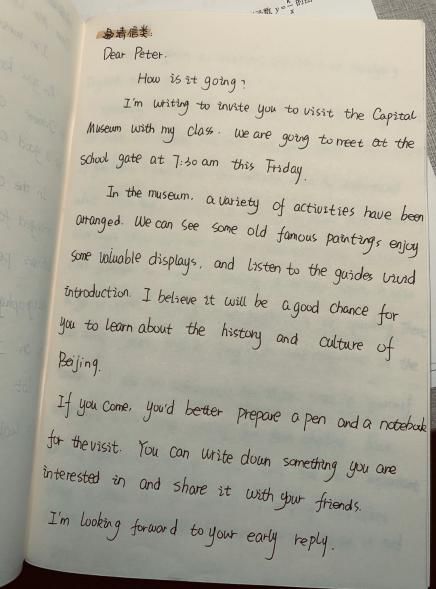 邀请信类:
Dear Peter.
How is it going?
I'm writing to invite you to visit the Capital
Museum with my class. We are going to meet at the
school gate at 7:30 am this Friday.
In the museum, a variety of activities have been
arranged. We can see some old famous paintings enjoy
some valuable displays, and listen to the guides vivid
introduction. I believe it will be a good chance for
you to learn about the history and culture of
Beijing.
If you come, you'd better prepare a pen and a notebook
for the visit. You can write down something you are
interested in and share it with your friends.
I'm looking forward to your early reply.